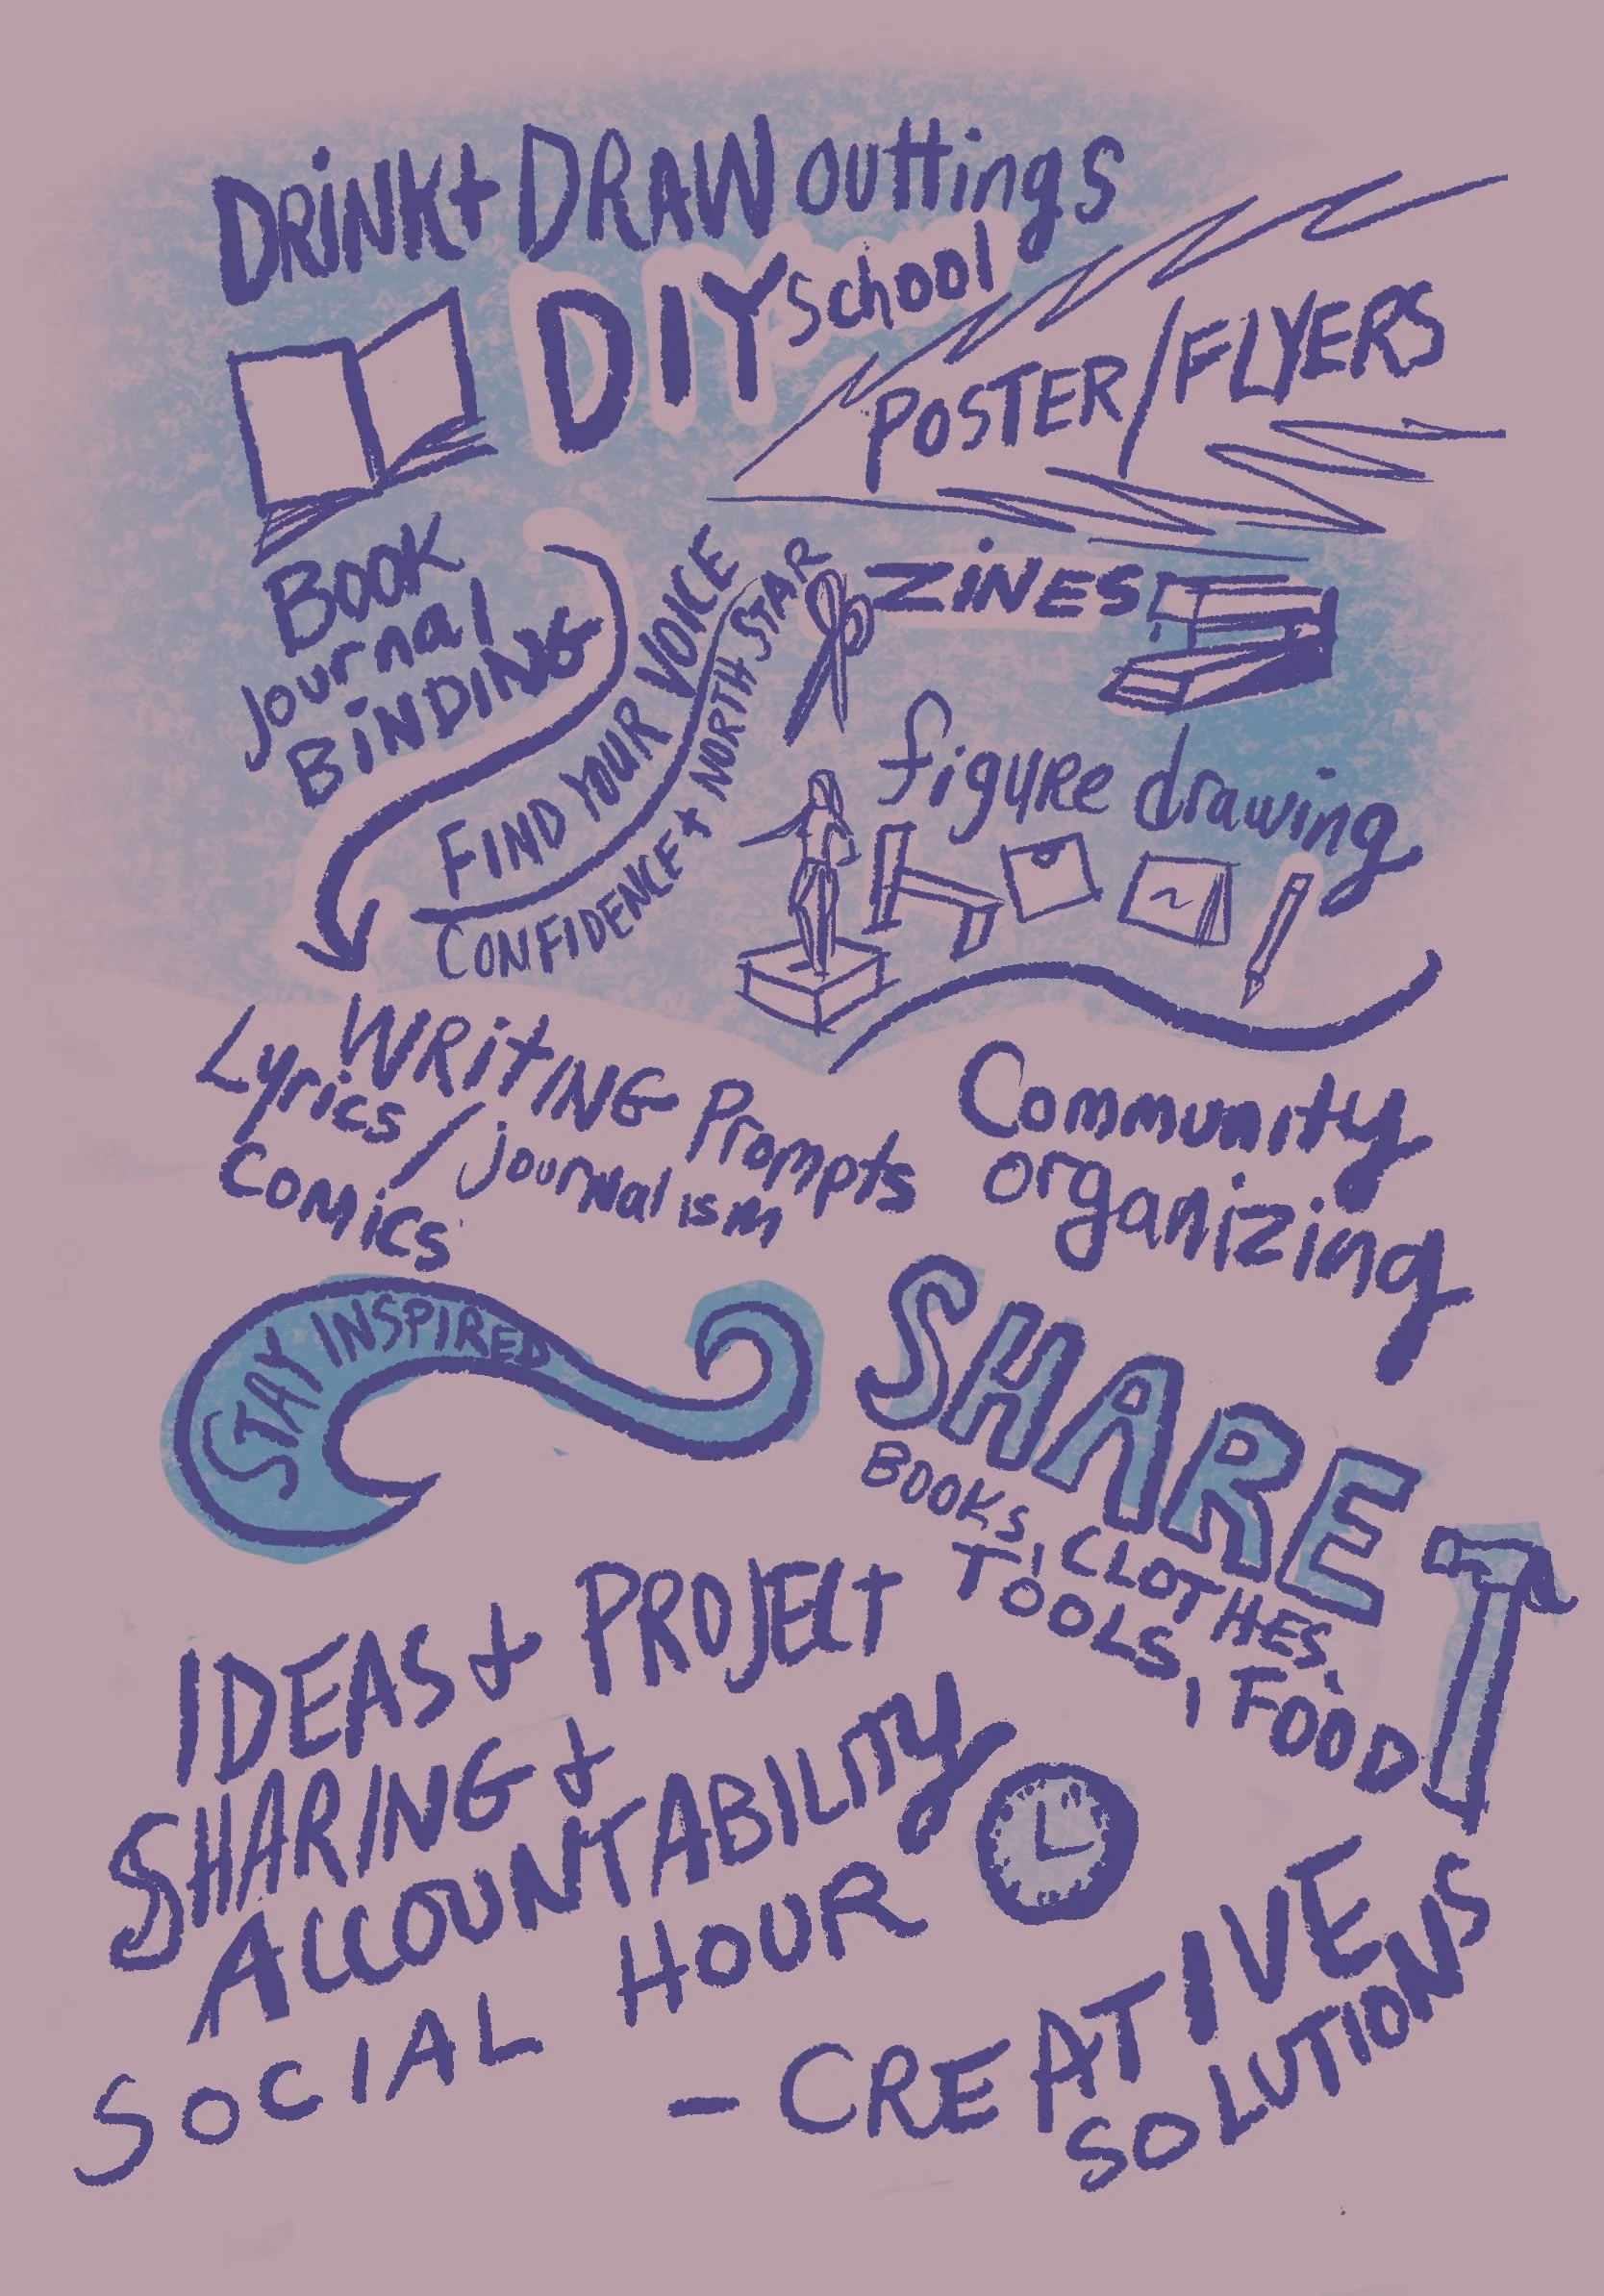 DRINK + DRAW outtings
DIY School
POSTER/FLYERS
BOOK
Journal
BINDING
FIND YOUR VOICE
CONFIDENCE + NORTH STAR
ZINES
figure drawing
WRITING Prompts
Lyrics / journalism
Comics
Community
organizing
STAY INSPIRED
SHARE
BOOKS, CLOTHES,
TOOLS, FOOD
IDEAS + PROJECT
SHARING +
ACCOUNTABILITY
SOCIAL HOUR
- CREATIVE
SOLUTIONS